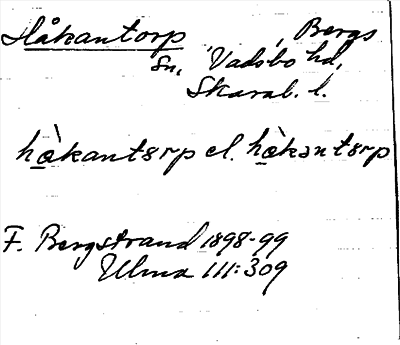 Håkantorp, Bergs
sn, Vadsbo hd,
Skarab. l.
hàkantɵrp el. hàkəntɵrp
F. Bergstrand 1898-99
Ulma 111:309